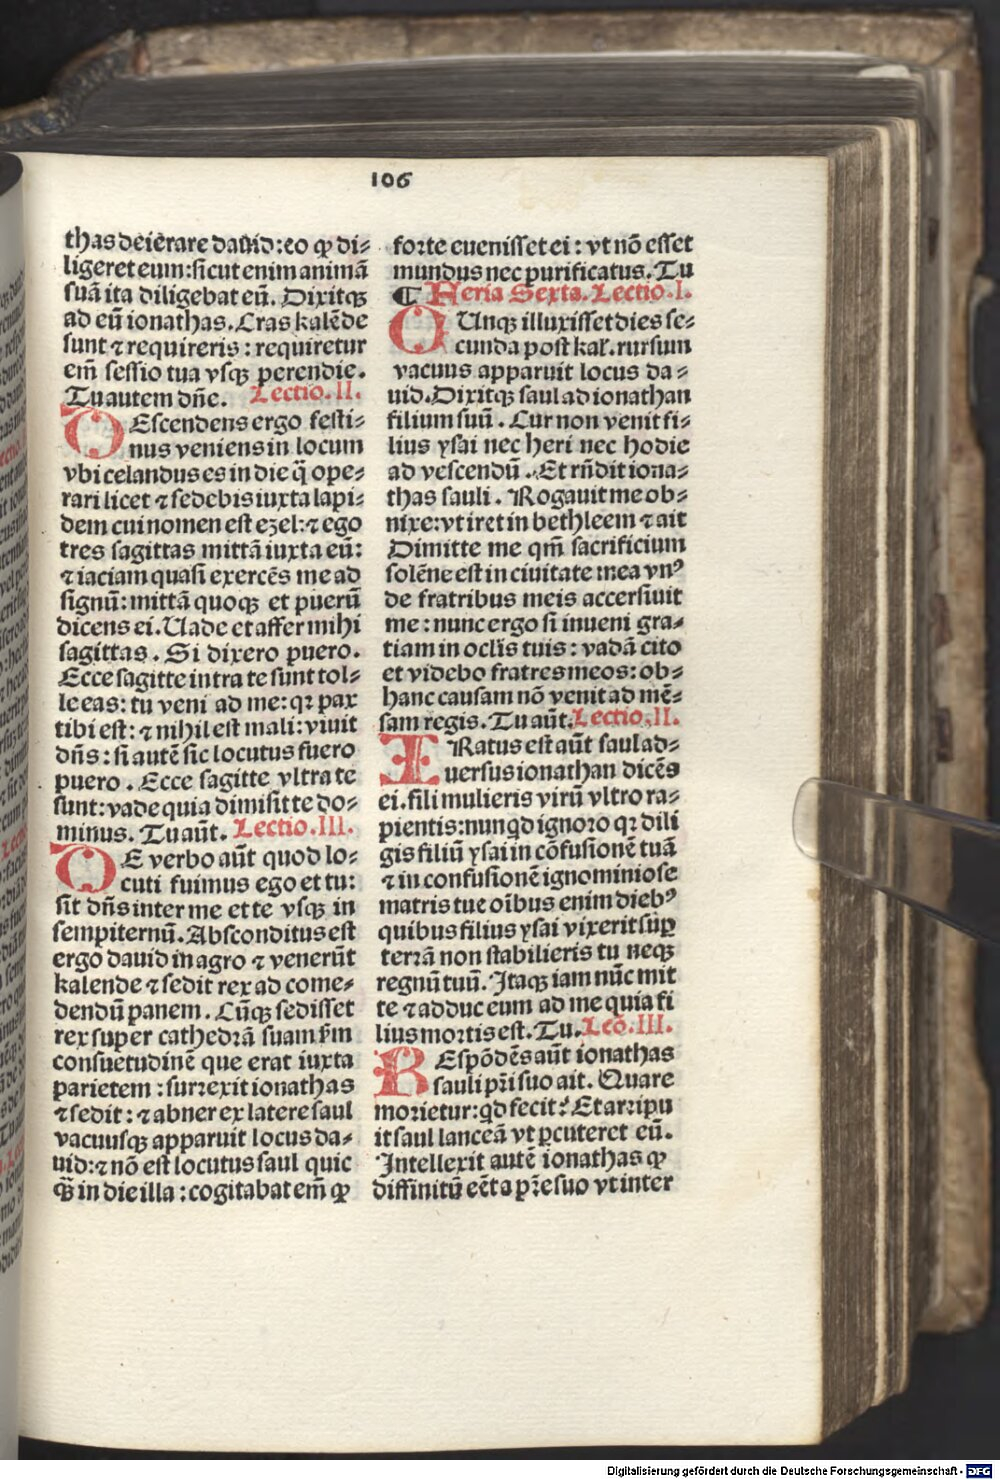 106
thas deierare dauid: eo ꝙ di⸗
ligeret eum: sicut enim animā
suā ita diligebat eū. Dixitqꝫ
ad eū ionathas. Cras kalēde
sunt ⁊ requireris: requiretur
em̄ sessio tua vsqꝫ perendie.
Tu autem dn̄e. Lectio. II.
DEscendens ergo festi⸗
nus veniens in locum
vbi celandus es in die q̄ ope⸗
rari licet ⁊ sedebis iuxta lapi⸗
dem cui nomen est ezel: ⁊ ego
tres sagittas mittā iuxta eū:
⁊ iaciam quasi exercēs me ad
signū: mittā quoqꝫ et puerū
dicens ei. Uade et affer mihi
sagittas. Si dixero puero.
Ecce sagitte intra te sunt tol⸗
le eas: tu veni ad me: qꝛ pax
tibi est: ⁊ nihil est mali: viuit
dn̄s: si autē sic locutus fuero
puero. Ecce sagitte vltra te
sunt: vade quia dimisit te do⸗
minus. Tu aūt. Lectio. III.
DE verbo aūt quod lo⸗
cuti fuimus ego et tu:
sit dn̄s inter me et te vsqꝫ in
sempiternū. Absconditus est
ergo dauid in agro ⁊ venerūt
kalende ⁊ sedit rex ad come⸗
dendū panem. Cūqꝫ sedisset
rex super cathedrā suam scd̄m
consuetudinē que erat iuxta
parietem: surrexit ionathas
⁊ sedit: ⁊ abner ex latere saul
vacuusqꝫ apparuit locus da⸗
uid: ⁊ nō est locutus saul quic
ꝙ̄ in die illa: cogitabat em̄ ꝙ
forte euenisset ei: vt nō esset
mundus nec purificatus. Tu
¶ Feria Sexta. Lectio. I.
CUnqꝫ illuxisset dies se⸗
cunda post kal̄. rursum
vacuus apparuit locus da⸗
uid. Dixitqꝫ saul ad ionathan
filium suū. Cur non venit fi⸗
lius ysai nec heri nec hodie
ad vescendū. Et rn̄dit iona⸗
thas sauli. Rogauit me ob⸗
nixe: vt iret in bethleem ⁊ ait
Dimitte me qm̄ sacrificium
solēne est in ciuitate mea vnꝰ
de fratribus meis accersiuit
me: nunc ergo si inueni gra⸗
tiam in ocl̄is tuis: vadā cito
et videbo fratres meos: ob⸗
hanc causam nō venit ad mē⸗
sam regis. Tu aūt. Lectio. II.
IRatus est aūt saul ad⸗
uersus ionathan dicēs
ei. fili mulieris virū vltro ra⸗
pientis: nunqd ignoro qꝛ dili
gis filiū ysai in cōfusionē tuā
⁊ in confusionē ignominiose
matris tue oībus enim diebꝰ
quibus filius ysai vixerit suꝑ
terrā non stabilieris tu neqꝫ
regnū tuū. Itaqꝫ iam nūc mit
te ⁊ adduc eum ad me quia fi
lius mortis est. Tu. Leō. III.
REspōdēs aūt ionathas
sauli pr̄i suo ait. Quare
morietur: qd fecit? Et arripu
it saul lanceā vt ꝑcuteret eū.
Intellexit autē ionathas ꝙ
diffinitū eēt a pr̄e suo vt inter
Digitalisierung gefördert durch die Deutsche Forschungsgemeinschaft - DFG